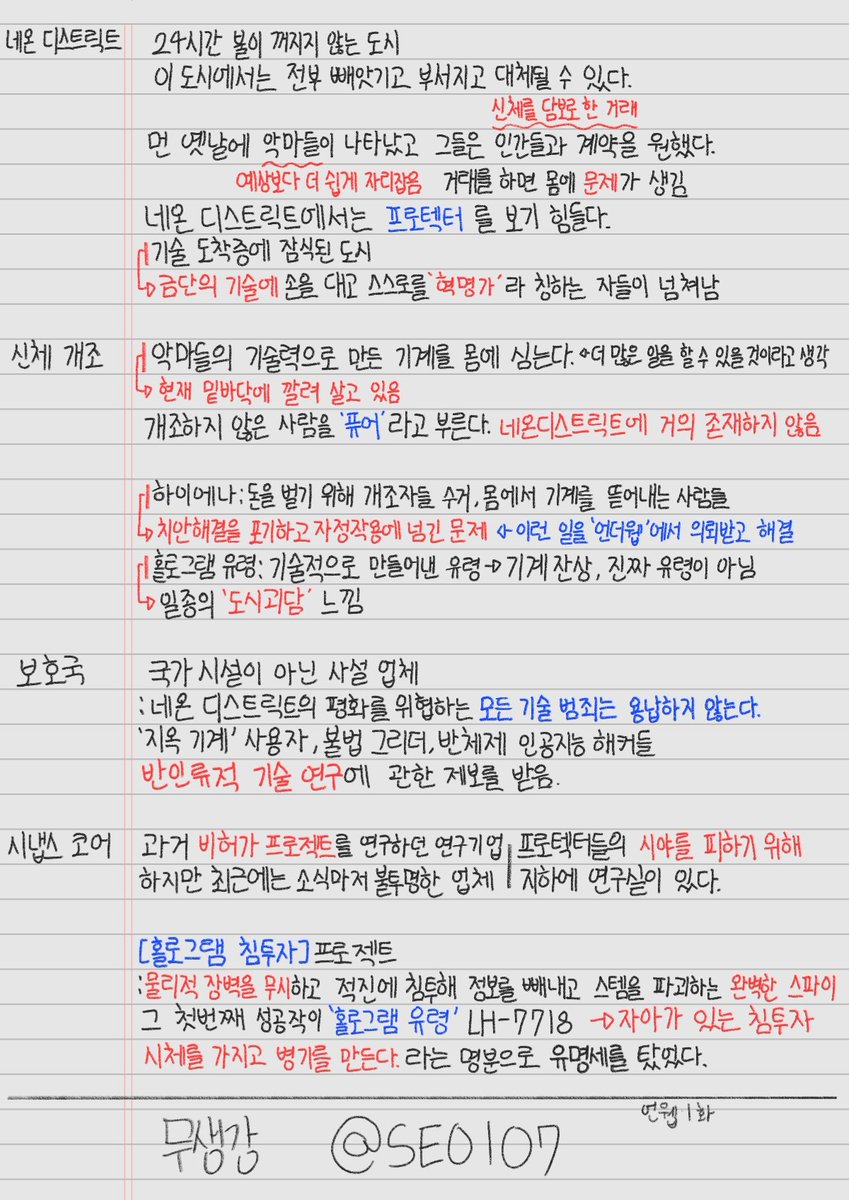 네온 디스트릭트 24시간 불이 꺼지지 않는 도시
이 도시에서는 전부 빼앗기고 부서지고 대체될 수 있다.
신체를 담보로 한 거래
먼 옛날에 악마들이 나타났고 그들은 인간들과 계약을 원했다.
예상보다 더 쉽게 자리잡음 거래를 하면 몸에 문제가 생김
네온 디스트릭트에서는 프로텍터를 보기 힘들다.
기술 도착증에 잠식된 도시
→금단의 기술에 손을 대고 스스로를 '혁명가'라 칭하는 자들이 넘쳐남
신체 개조 악마들의 기술력으로 만든 기계를 몸에 심는다. ←더 많은 일을 할 수 있을 것이라고 생각
→현재 밑바닥에 깔려 살고 있음
개조하지 않은 사람을 '퓨어'라고 부른다. 네온디스트릭트에 거의 존재하지 않음
하이에나: 돈을 벌기 위해 개조자들 수거, 몸에서 기계를 뜯어내는 사람들
→치안해결을 포기하고 자정작용에 넘긴 문제 ←이런 일을 '언더웹'에서 의뢰받고 해결
홀로그램 유령: 기술적으로 만들어낸 유령→기계 잔상, 진짜 유령이 아님
→일종의 '도시괴담' 느낌
보호국 국가 시설이 아닌 사설 업체
: 네온 디스트릭트의 평화를 위협하는 모든 기술 범죄는 용납하지 않는다.
'지옥 기계' 사용자, 불법 그리더, 반체제 인공지능 해커들
반인류적 기술 연구에 관한 제보를 받음.
시냅스 코어 과거 비허가 프로젝트를 연구하던 연구기업 | 프로텍터들의 시야를 피하기 위해
하지만 최근에는 소식마저 불투명한 업체 | 지하에 연구실이 있다.
[홀로그램 침투자] 프로젝트
: 물리적 장벽을 무시하고 적진에 침투해 정보를 빼내고 스템을 파괴하는 완벽한 스파이
그 첫번째 성공작이 '홀로그램 유령' LH-7718 →자아가 있는 침투자
시체를 가지고 병기를 만든다. 라는 명분으로 유명세를 탔었다.
언웹 1화
무생강 @SEO107